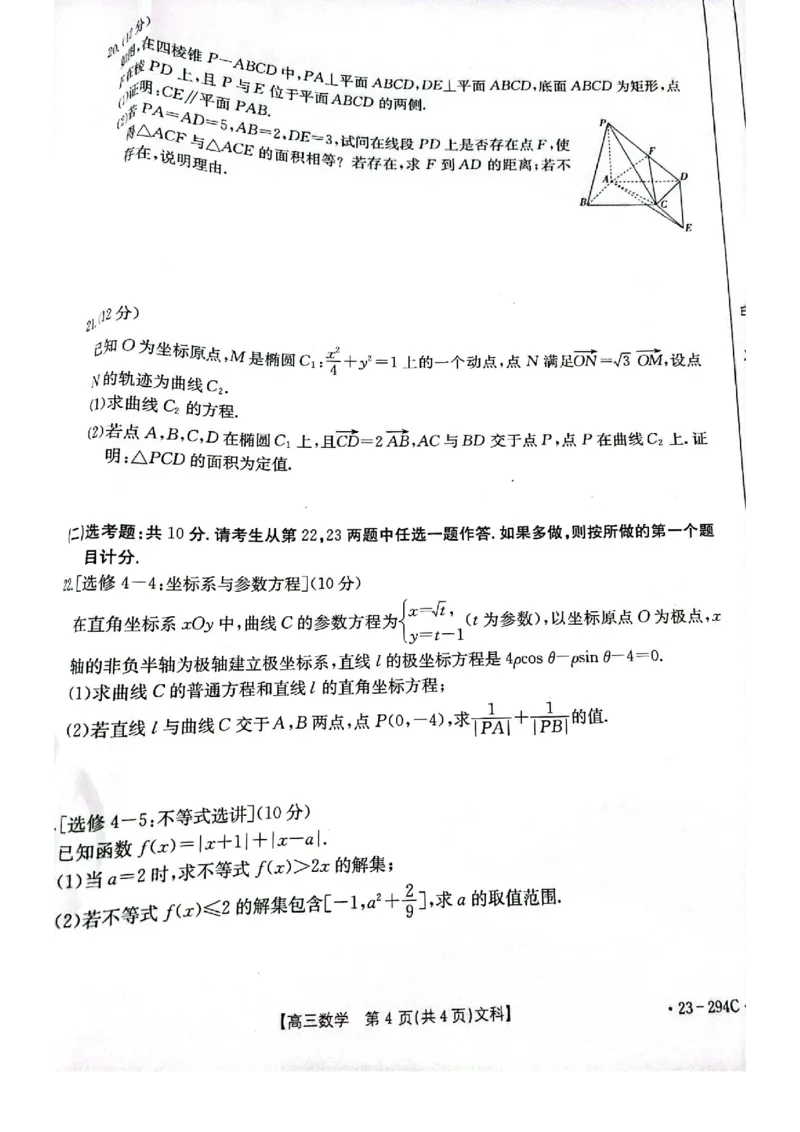 20.(12分)
如图,在四棱锥 P—ABCD 中,PA⊥平面 ABCD,DE⊥平面 ABCD,底面 ABCD 为矩形,点
F 在棱 PD 上,且 P 与 E 位于平面 ABCD 的两侧.
(1)证明:CE∥平面 PAB.
(2)若 PA=AD=5,AB=2,DE=3,试问在线段 PD 上是否存在点 F,使
得△ACF 与△ACE 的面积相等?若存在,求 F 到 AD 的距离;若不
存在,说明理由.
P
F
A
D
B
C
E
21.(12分)
已知 O 为坐标原点,M 是椭圆 C₁:x²/4+y²=1 上的一个动点,点 N 满足ON=√3 OM,设点
N的轨迹为曲线 C₂.
(1)求曲线 C₂ 的方程.
(2)若点 A,B,C,D 在椭圆 C₁ 上,且CD=2 AB,AC 与 BD 交于点 P,点 P 在曲线 C₂ 上.证
明:△PCD 的面积为定值.
(二)选考题:共 10 分.请考生从第 22,23 两题中任选一题作答.如果多做,则按所做的第一个题
目计分.
22.[选修 4—4:坐标系与参数方程](10 分)
在直角坐标系 xOy 中,曲线 C 的参数方程为{x=√t, y=t−1 (t 为参数),以坐标原点 O 为极点,x
轴的非负半轴为极轴建立极坐标系,直线 l 的极坐标方程是 4ρcos θ−ρsin θ−4=0.
(1)求曲线 C 的普通方程和直线 l 的直角坐标方程;
(2)若直线 l 与曲线 C 交于 A,B 两点,点 P(0,−4),求1/|PA|+1/|PB|的值.
.[选修 4—5:不等式选讲](10 分)
已知函数 f(x)=|x+1|+|x−a|.
(1)当 a=2 时,求不等式 f(x)>2x 的解集;
(2)若不等式 f(x)≤2 的解集包含[−1,a²+2/9],求 a 的取值范围.
【高三数学 第 4 页(共 4 页)文科】
·23−294C·